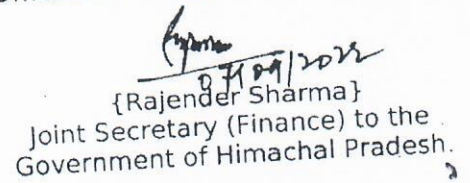 07/09/2022
{Rajender Sharma}
Joint Secretary (Finance) to the
Government of Himachal Pradesh.